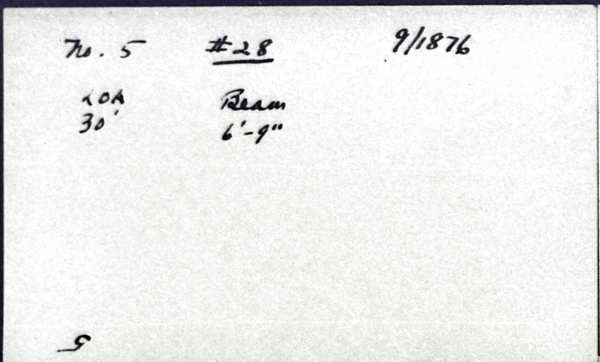 No. 5 #28 9/1876
LOA Beam
30' 6'-9"
5